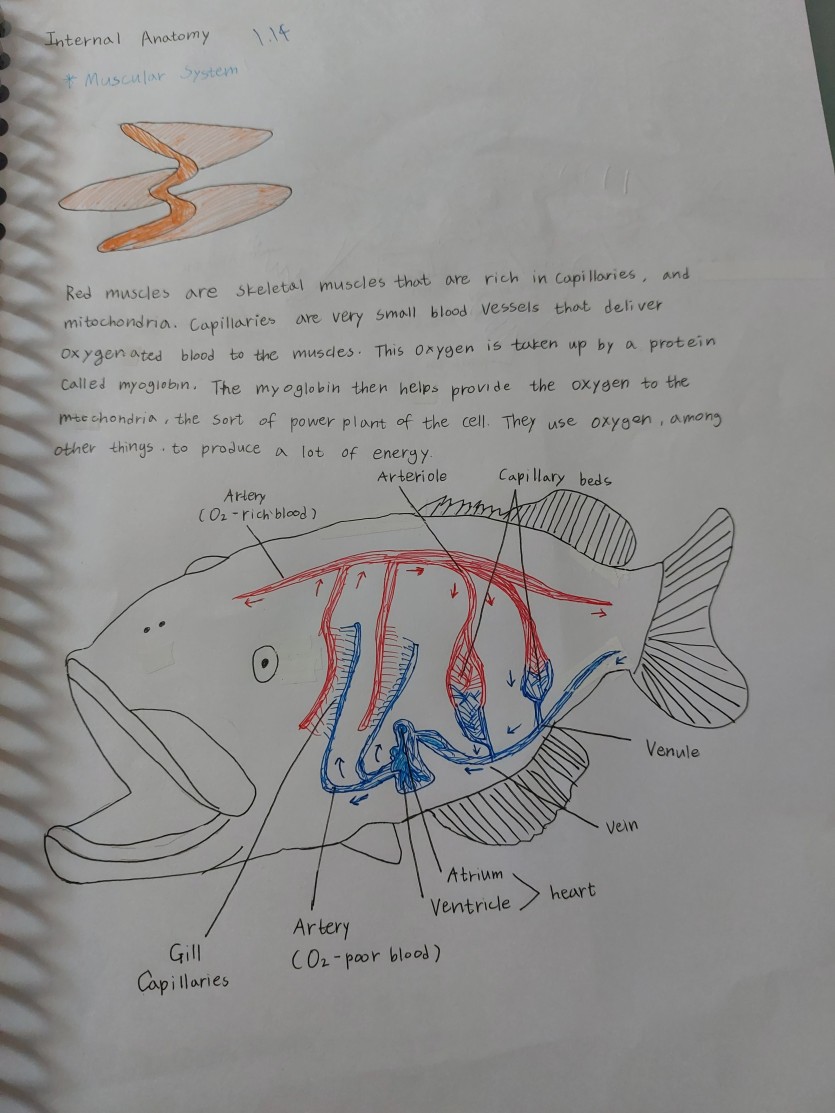 Internal Anatomy 1.14
* Muscular System
Red muscles are skeletal muscles that are rich in capillaries, and
mitochondria. Capillaries are very small blood vessels that deliver
oxygenated blood to the muscles. This oxygen is taken up by a protein
called myoglobin. The myoglobin then helps provide the oxygen to the
mtochondria, the sort of power plant of the cell. They use oxygen, among
other things. to produce a lot of energy.
Arteriole
Capillary beds
Artery
(O₂-rich blood)
Venule
Vein
Atrium
Ventricle
heart
Artery
(O₂-poor blood)
Gill
Capillaries